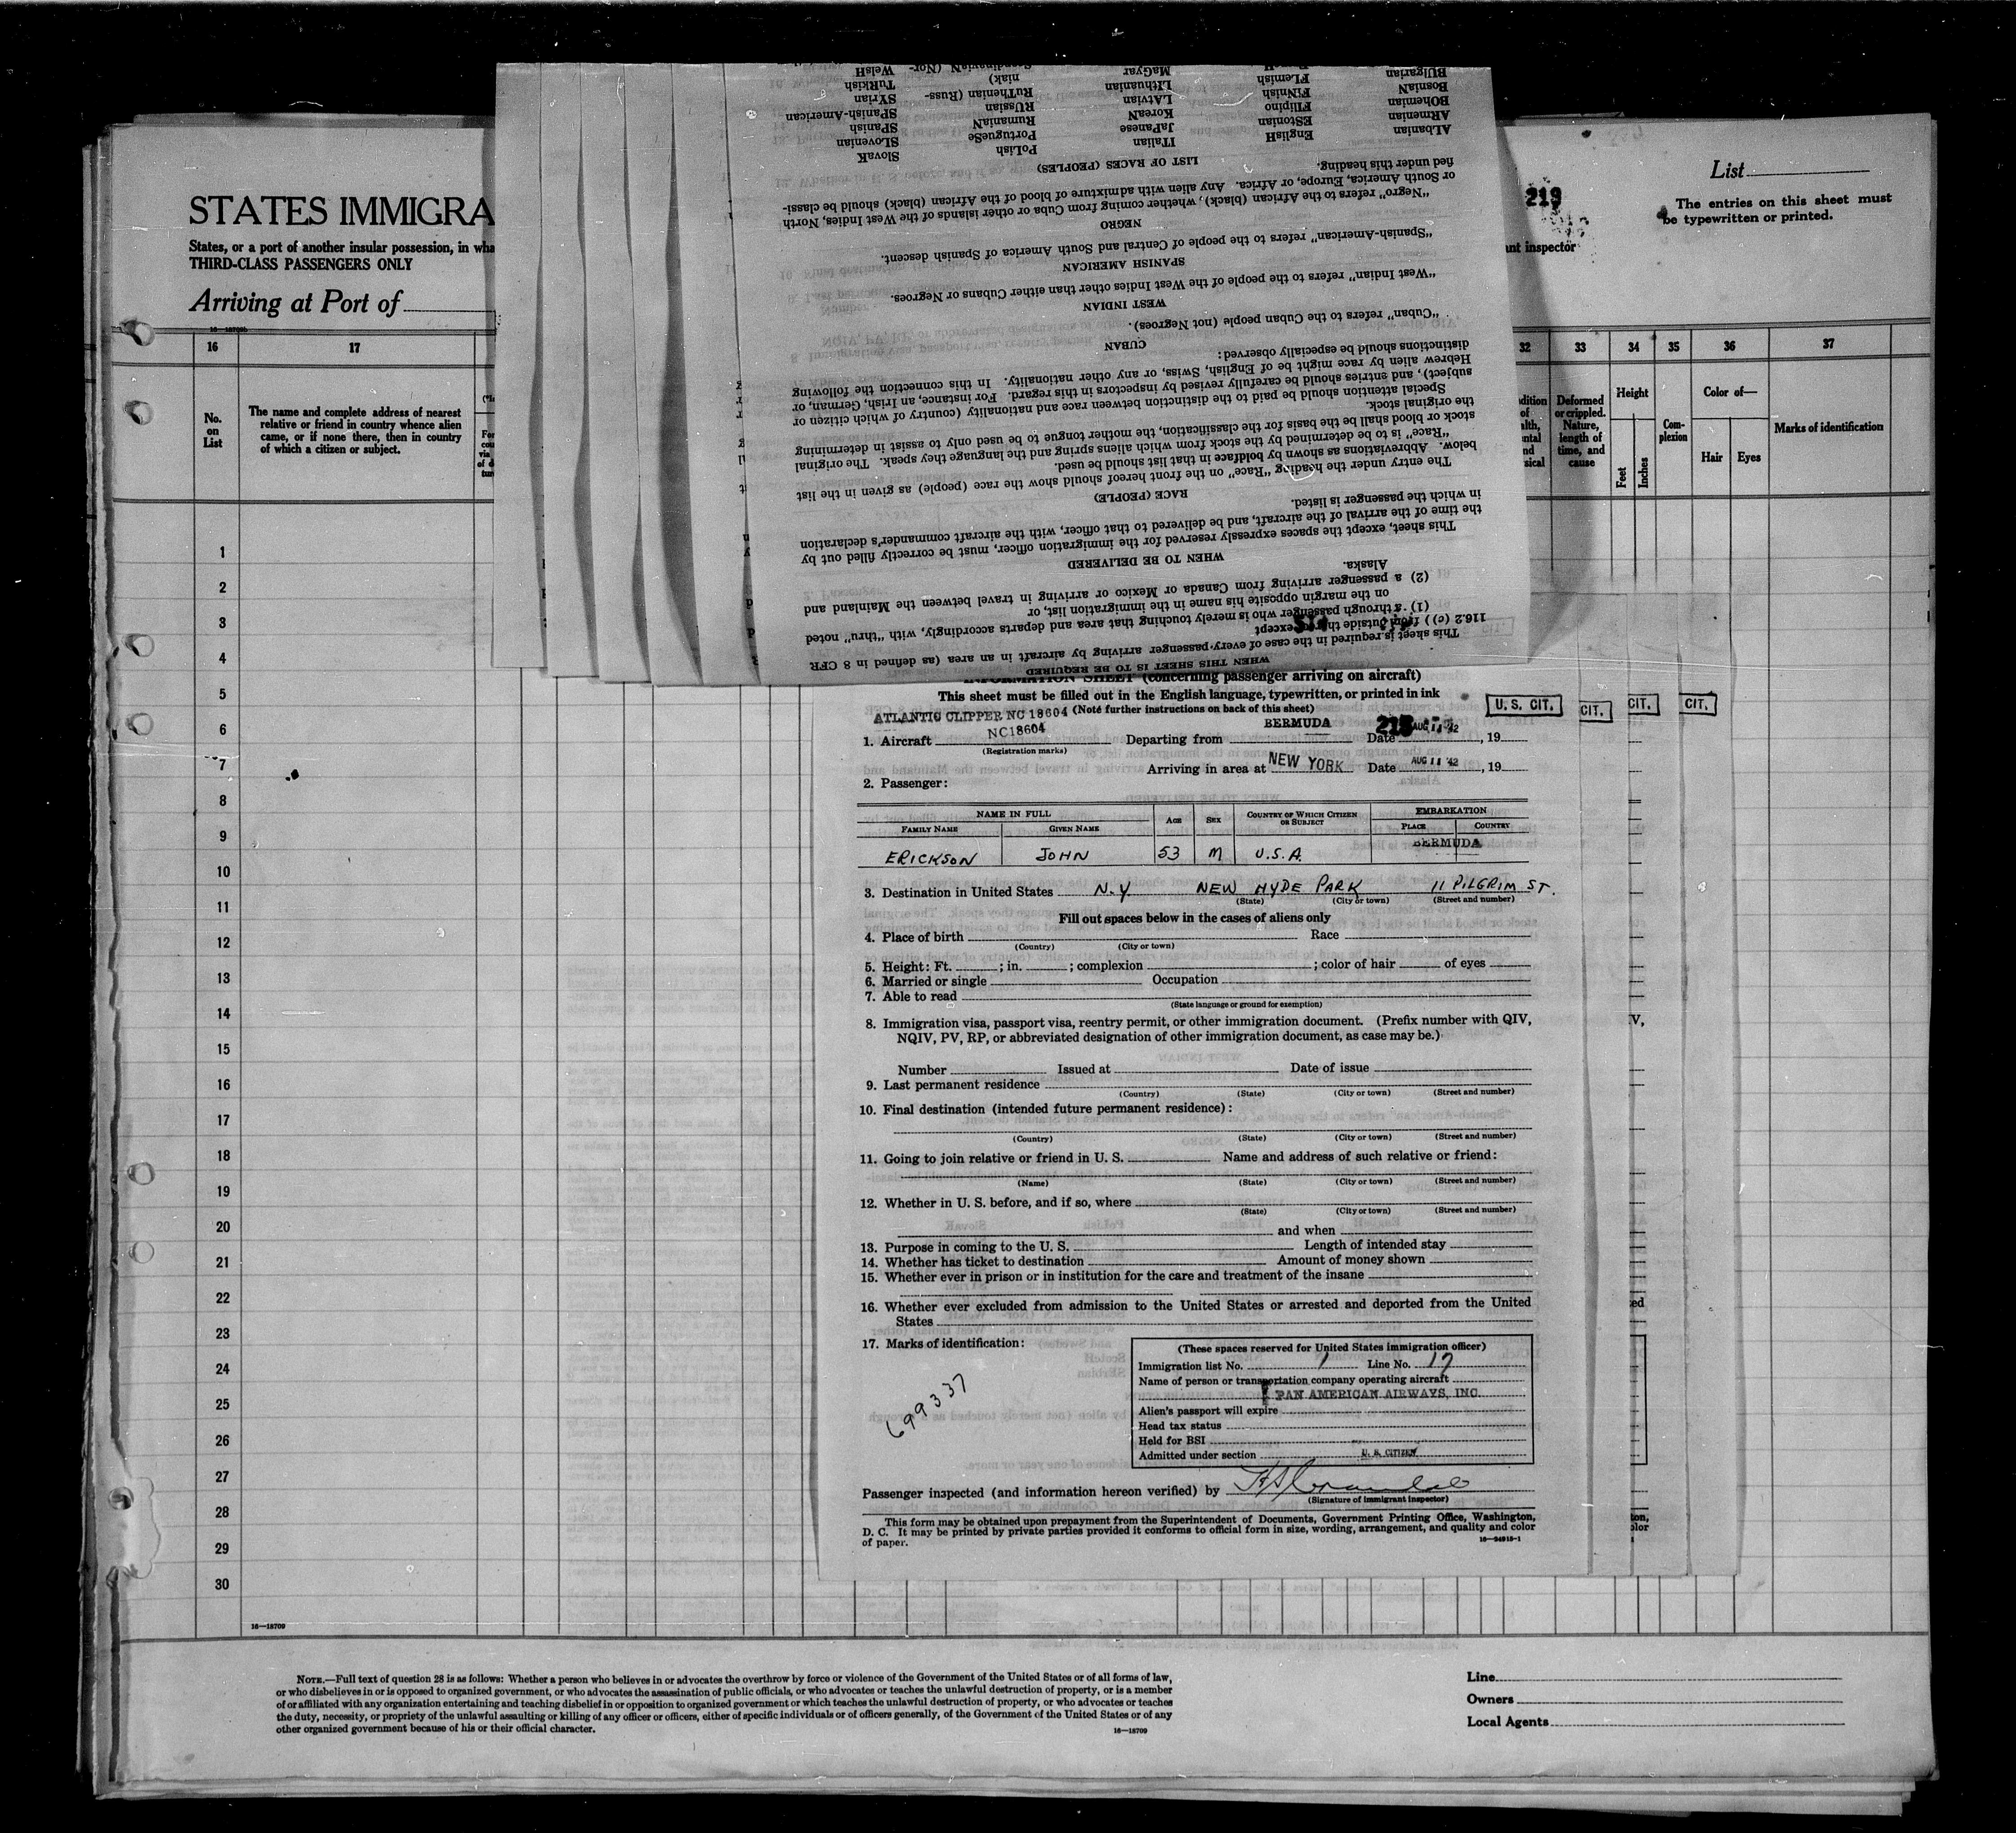 STATES IMMIGRA
States, or a port of another insular possession, in wha
THIRD-CLASS PASSENGERS ONLY
Arriving at Port of
16—18709b
16
17
No.
on
List
The name and complete address of nearest
relative or friend in country whence alien
came, or if none there, then in country
of which a citizen or subject.
1
2
3
4
5
6
7
8
9
10
11
12
13
14
15
16
17
18
19
20
21
22
23
24
25
26
27
28
29
30
16—18709
219
List
The entries on this sheet must
be typewritten or printed.
nt inspector
32
33
34
35
36
37
Deformed
or crippled.
Nature,
length of
time, and
cause
Height
Feet
Inches
Com-
plexion
Color of—
Hair
Eyes
Marks of identification
WHEN THIS SHEET IS TO BE REQUIRED
This sheet is required in the case of every passenger arriving by aircraft in an area (as defined in 8 CFR
116.2 (c)) from outside thereof except
(1) a through passenger who is merely touching that area and departs accordingly, with "thru" noted
on the margin opposite his name in the immigration list, or
(2) a passenger arriving from Canada or Mexico or arriving in travel between the Mainland and
Alaska.
WHEN TO BE DELIVERED
This sheet, except the spaces expressly reserved for the immigration officer, must be correctly filled out by
the time of the arrival of the aircraft, and be delivered to that officer, with the aircraft commander's declaration
in which the passenger is listed.
RACE (PEOPLE)
The entry under the heading "Race" on the front hereof should show the race (people) as given in the list
below. Abbreviations as shown by boldface in that list should be used.
"Race" is to be determined by the stock from which aliens spring and the language they speak. The original
stock or blood shall be the basis for the classification, the mother tongue to be used only to assist in determining
the original stock.
Special attention should be paid to the distinction between race and nationality (country of which citizen or
subject), and entries should be carefully revised by inspectors in this regard. For instance, an Irish, German, or
Hebrew alien by race might be of English, Swiss, or any other nationality. In this connection the following
distinctions should be especially observed:
CUBAN
"Cuban" refers to the Cuban people (not Negroes).
WEST INDIAN
"West Indian" refers to the people of the West Indies other than either Cubans or Negroes.
SPANISH AMERICAN
"Spanish-American" refers to the people of Central and South America of Spanish descent.
NEGRO
"Negro" refers to the African (black), whether coming from Cuba or other islands of the West Indies, North
or South America, Europe, or Africa. Any alien with admixture of blood of the African (black) should be classi-
fied under this heading.
LIST OF RACES (PEOPLES)
ALbanian EnglisH ITalian PoLish SlovaK
ARmenian EStonian JaPanese PortugueSe SLOvenian
BOhemian FIlipino KoreaN RumaniaN SPanish
BosniaN FiNnish LAtvian RUssian SPanish-American
BUlgarian FLemish LIthuanian RuThenian (Russ- SYrian
MaGyar niak) TuRkish
WelsH
INFORMATION SHEET (concerning passenger arriving on aircraft)
This sheet must be filled out in the English language, typewritten, or printed in ink
ATLANTIC CLIPPER NC 18604 (Note further instructions on back of this sheet)
U. S. CIT.
CIT.
CIT.
CIT.
1. Aircraft NC18604 Departing from BERMUDA Date AUG 11 '42, 19
(Registration marks)
Arriving in area at NEW YORK Date AUG 11 '42, 19
2. Passenger:
NAME IN FULL AGE SEX COUNTRY OF WHICH CITIZEN OR SUBJECT EMBARKATION
FAMILY NAME GIVEN NAME PLACE COUNTRY
ERICKSON JOHN 53 M U.S.A. BERMUDA
3. Destination in United States N.Y. NEW HYDE PARK 11 PILGRIM ST.
(State) (City or town) (Street and number)
Fill out spaces below in the cases of aliens only
4. Place of birth Race
(Country) (City or town)
5. Height: Ft. ; in. ; complexion ; color of hair of eyes
6. Married or single Occupation
7. Able to read
(State language or ground for exemption)
8. Immigration visa, passport visa, reentry permit, or other immigration document. (Prefix number with QIV,
NQIV, PV, RP, or abbreviated designation of other immigration document, as case may be.)
Number Issued at Date of issue
9. Last permanent residence
(Country) (State) (City or town) (Street and number)
10. Final destination (intended future permanent residence):
(Country) (State) (City or town) (Street and number)
11. Going to join relative or friend in U. S. Name and address of such relative or friend:
(Name) (State) (City or town) (Street and number)
12. Whether in U. S. before, and if so, where
(State) (City or town) (Street and number)
and when
13. Purpose in coming to the U. S. Length of intended stay
14. Whether has ticket to destination Amount of money shown
15. Whether ever in prison or in institution for the care and treatment of the insane
16. Whether ever excluded from admission to the United States or arrested and deported from the United
States
17. Marks of identification:
699337
(These spaces reserved for United States immigration officer)
Immigration list No. 1 Line No. 17
Name of person or transportation company operating aircraft
PAN AMERICAN AIRWAYS, INC.
Alien's passport will expire
Head tax status
Held for BSI
Admitted under section U. S. CITIZEN
Passenger inspected (and information hereon verified) by
(Signature of immigrant inspector)
This form may be obtained upon prepayment from the Superintendent of Documents, Government Printing Office, Washington,
D. C. It may be printed by private parties provided it conforms to official form in size, wording, arrangement, and quality and color
of paper.
16—24915-1
NOTE.—Full text of question 28 is as follows: Whether a person who believes in or advocates the overthrow by force or violence of the Government of the United States or of all forms of law,
or who disbelieves in or is opposed to organized government, or who advocates the assassination of public officials, or who advocates or teaches the unlawful destruction of property, or is a member
of or affiliated with any organization entertaining and teaching disbelief in or opposition to organized government or which teaches the unlawful destruction of property, or who advocates or teaches
the duty, necessity, or propriety of the unlawful assaulting or killing of any officer or officers, either of specific individuals or of officers generally, of the Government of the United States or of any
other organized government because of his or their official character.
16—18709
Line
Owners
Local Agents